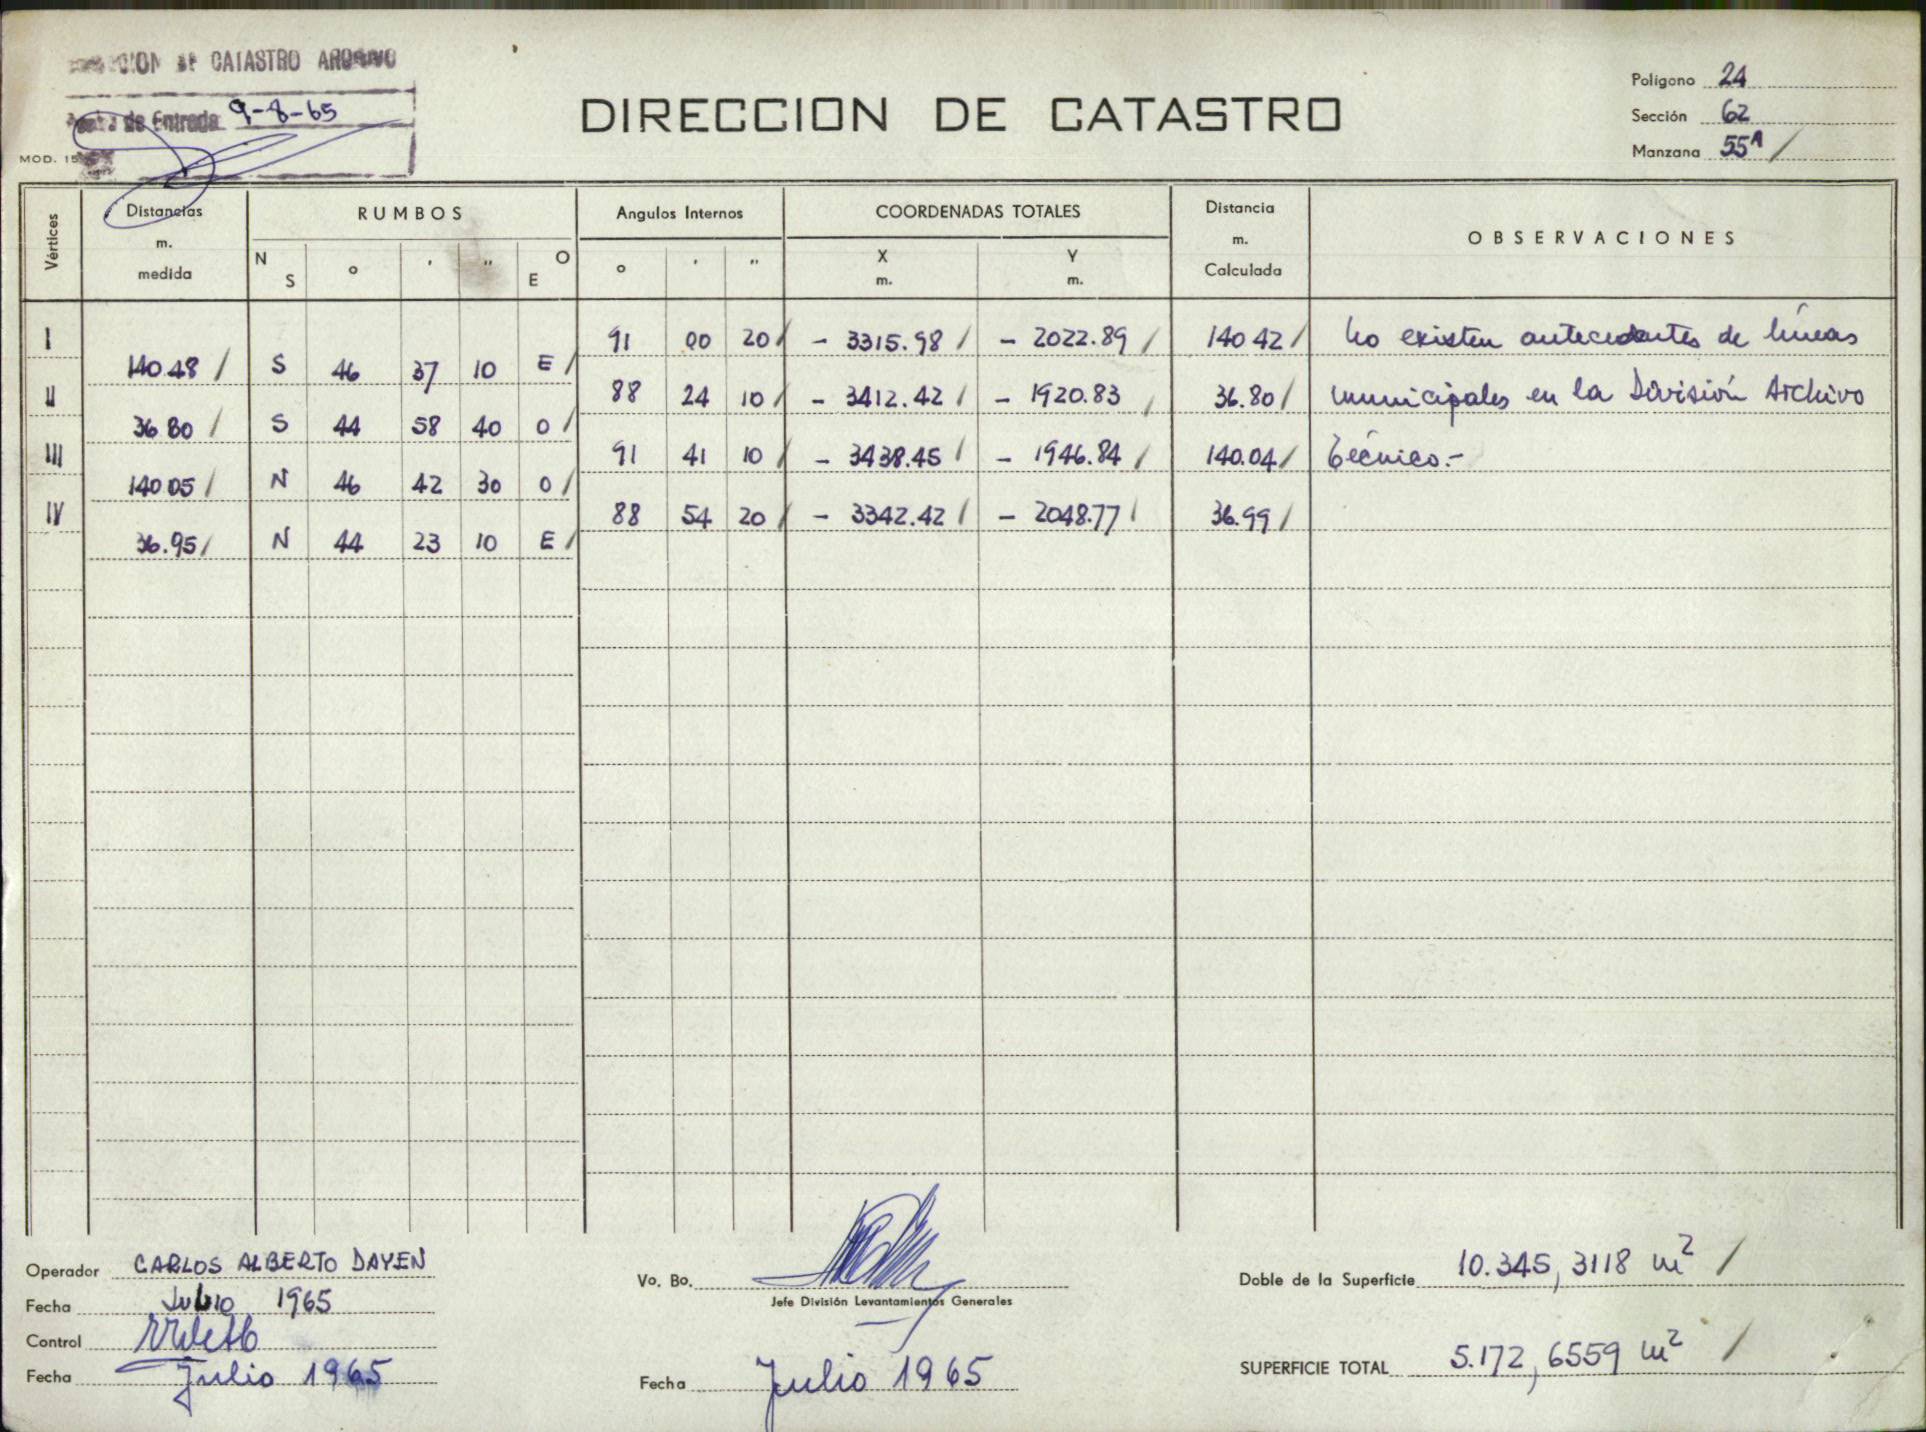 CATASTRO ARCHIVO
de Entrada 9-8-65
MOD. 15
DIRECCION DE CATASTRO
Polígono 24
Sección 62
Manzana 55A /
Vértices
Distancias m. medida
RUMBOS
N S ° ' '' O E
Angulos Internos
° ' ''
COORDENADAS TOTALES
X m. Y m.
Distancia m. Calculada
OBSERVACIONES
I 91 00 20 / - 3315.98 / - 2022.89 / 140 42 / No existen antecedentes de líneas
140.48 / S 46 37 10 E /
II 88 24 10 / - 3412.42 / - 1920.83 / 36.80 / municipales en la División Archivo
36 80 / S 44 58 40 O /
III 91 41 10 / - 3438.45 / - 1946.84 / 140.04 / Técnico.-
140 05 / N 46 42 30 O /
IV 88 54 20 / - 3342.42 / - 2048.77 / 36.99 /
36.95 / N 44 23 10 E /
Operador CARLOS ALBERTO DAYEN
Fecha Julio 1965
Control
Fecha Julio 1965
Vo. Bo.
Jefe División Levantamientos Generales
Fecha Julio 1965
Doble de la Superficie 10.345,3118 m2 /
SUPERFICIE TOTAL 5.172,6559 m2 /